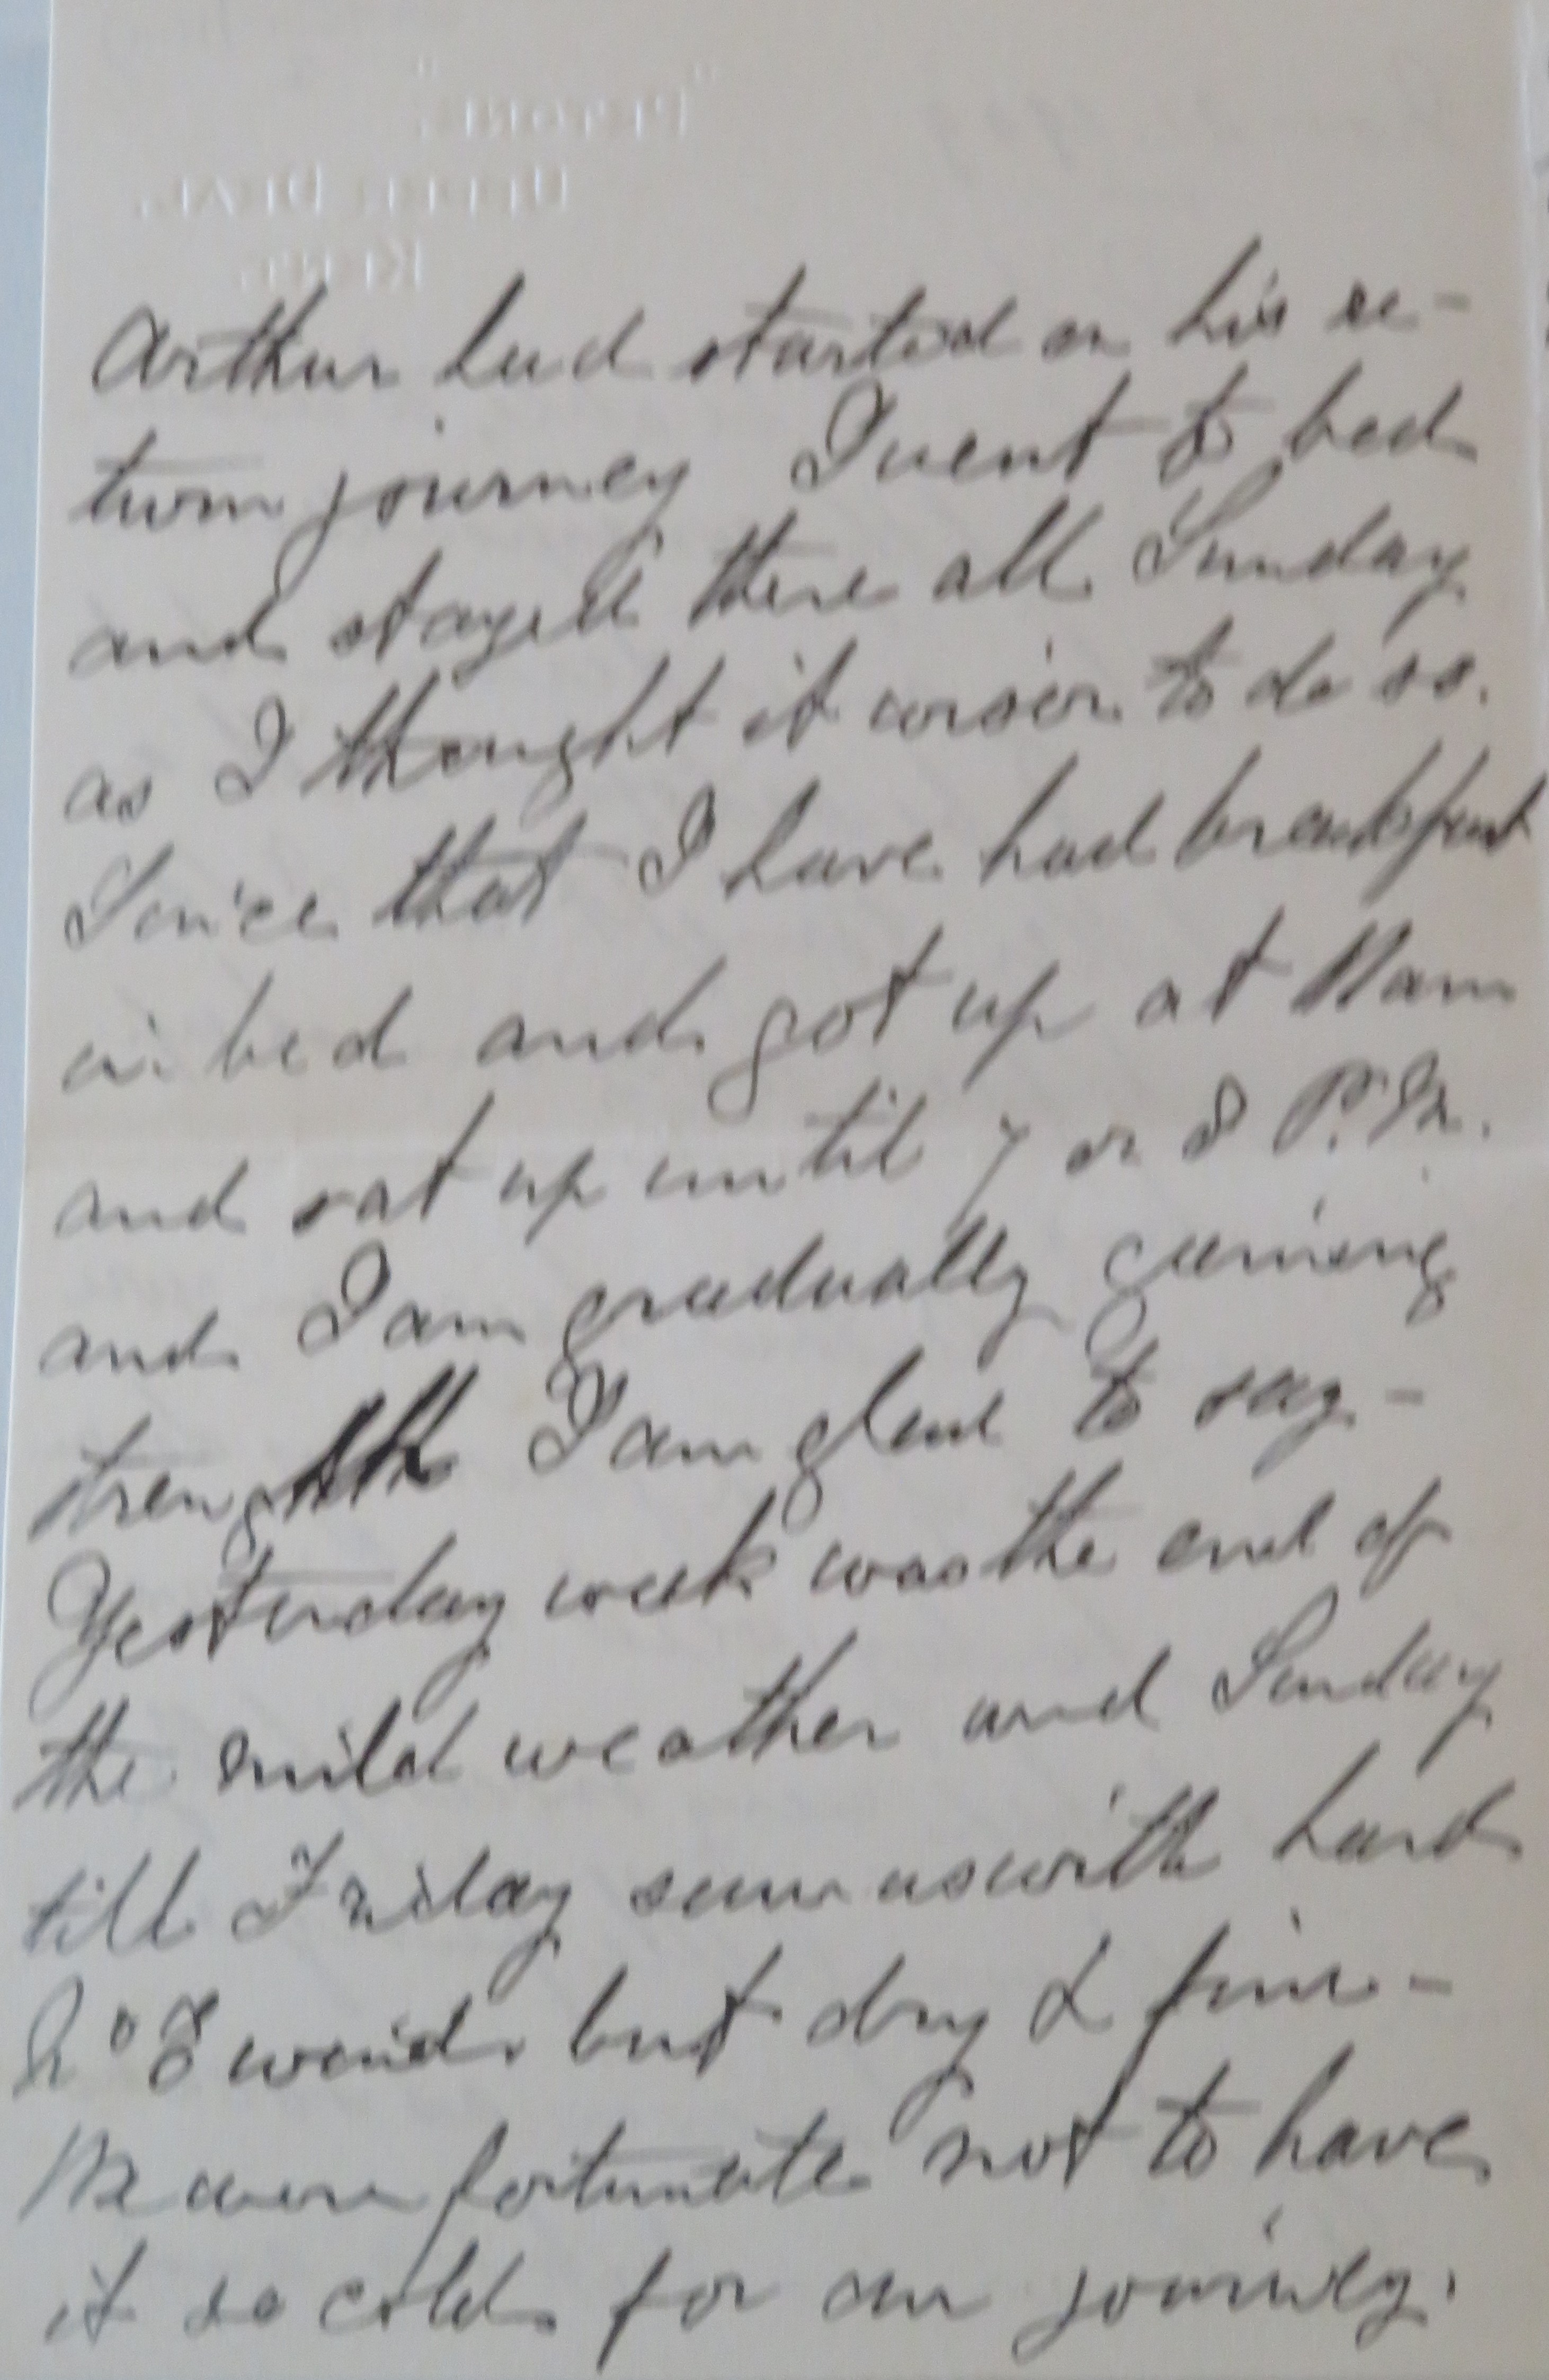 UPPER DEAL.
KENT.
Arthur had started on his re-
turn journey I went to bed
and stayed there all Sunday
as I thought it wiser to do so.
Since that I have had breakfast
in bed and got up at 11 am
and sat up until 7 or 8 P.M.
and I am gradually gaining
strength I am glad to say -
Yesterday week was the end of
the mild weather and Sunday
till Friday saw us with hard
wind but dry & fine -
We were fortunate not to have
it so cold for our journey.